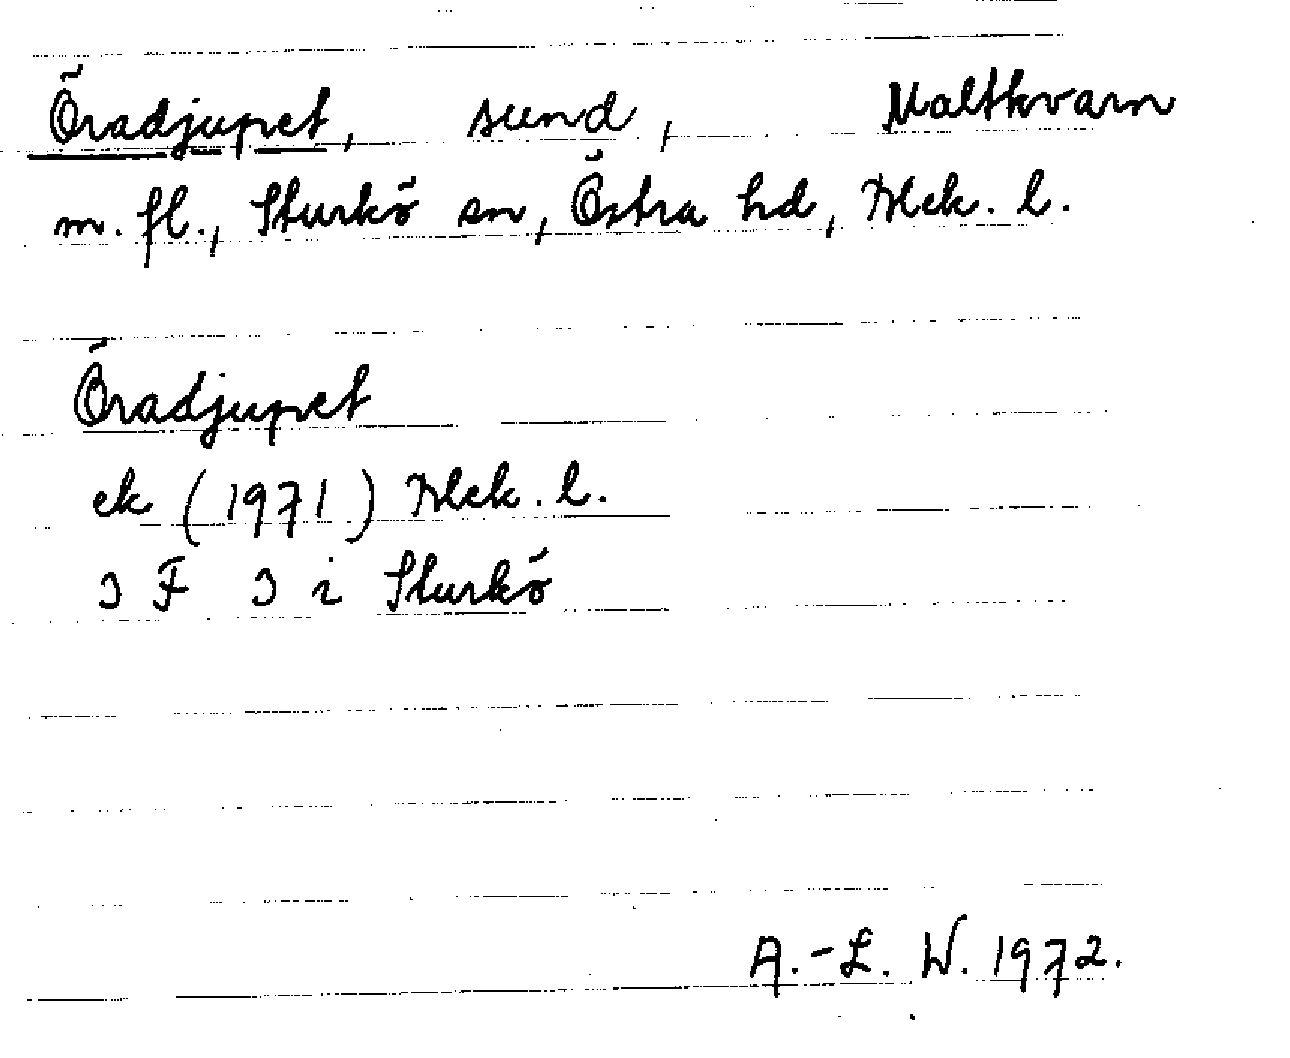 Öradjupet, sund, Maltkvarn
m. fl., Sturkö sn, Östra hd, Blek. l.
Öradjupet
ek (1971) Blek. l.
3 F 3 i Sturkö
A.-L. W. 1972.